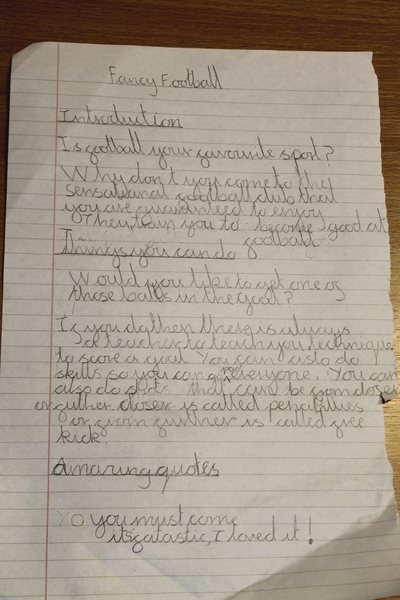 Fancy Football
Introduction
Is football your favourite sport?
Why don't you come to the
sensational football club that
you are guaranteed to enjoy
They train you to become good at
football.
Things you can do
Would you like to get one of
those balls in the goal?
If you do then there is always
a teacher to teach you technique
to score a goal. You can also do
skills so you can everyone. You can
also do that can be from closer
or futher. closer is called penerllties
or from further is called free
kick.
Amazing quotes
Yo you must come
its fatastic, I loved it!